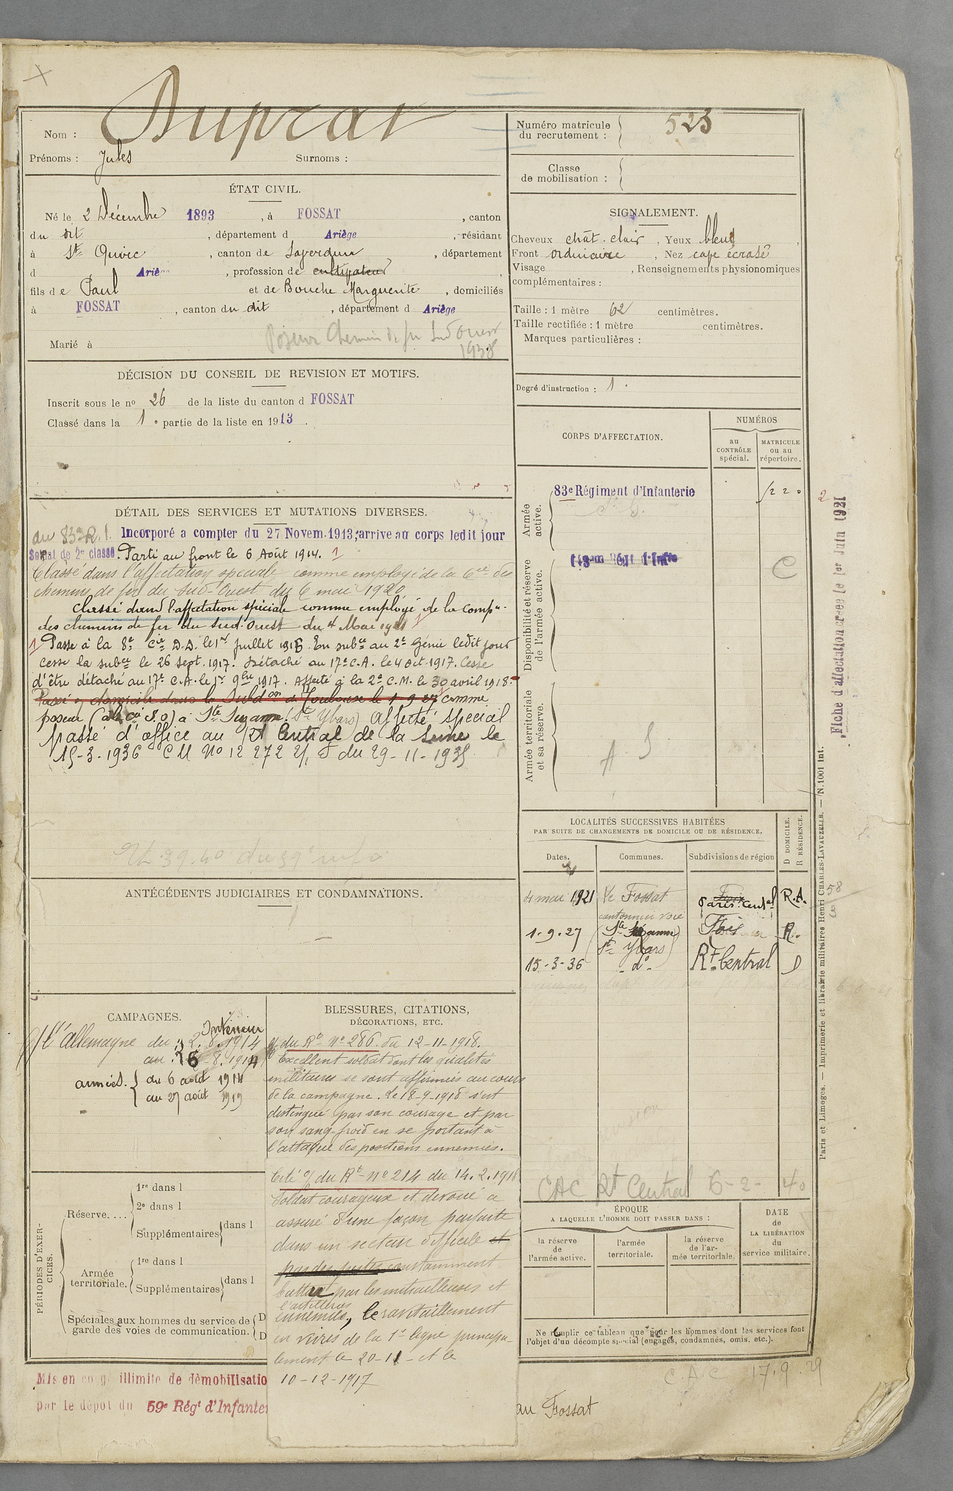 Nom : Duprat
Prénoms : Jules Surnoms :
Numéro matricule
du recrutement : 523
Classe
de mobilisation :
ÉTAT CIVIL.
Né le 2 Décembre 1893, à FOSSAT, canton
du dit, département d Ariège, résidant
à St Quirc, canton de Saverdun, département
d Ariè, profession de cultivateur
fils de Paul et de Bouche Marguerite, domiciliés
à FOSSAT, canton du dit, département d Ariège
Poseur Chemin de fer Sud Ouest
Marié à 1938
SIGNALEMENT.
Cheveux chât. clair, Yeux bleus,
Front ordinaire, Nez cape écrasé
Visage , Renseignements physionomiques
complémentaires :
Taille : 1 mètre 62 centimètres.
Taille rectifiée : 1 mètre centimètres.
Marques particulières :
Degré d'instruction : 1.
DÉCISION DU CONSEIL DE REVISION ET MOTIFS.
Inscrit sous le no 26 de la liste du canton d FOSSAT
Classé dans la 1e partie de la liste en 1913.
CORPS D'AFFECTATION.
NUMÉROS
au
CONTRÔLE
spécial.
MATRICULE
ou au
répertoire.
Armée
active.
83e Régiment d'Infanterie
Disponibilité et réserve
de l'armée active.
C
Armée territoriale
et sa réserve.
A S
DÉTAIL DES SERVICES ET MUTATIONS DIVERSES.
au 83e R.I. Incorporé a compter du 27 Novem. 1913; arrive au corps ledit jour
Soldat de 2e classe. Parti au front le 6 Août 1914. 1
Classé dans l'affectation spéciale comme employé de la Cie des
chemins de fer du Sud-Ouest du 6 mai 1920
Classé dans l'affectation spéciale comme employé de la Comp.
des chemins de fer du Sud-Ouest du 4 Mai 1921
1 Passé à la 8e Cie D.D. le 1er Juillet 1916. En subce au 2e Génie ledit jour
cesse la subce le 26 sept. 1917. Détaché au 17e C.A. le 4 oct. 1917. Cesse
d'être détaché au 17e C.A. le 1er 9bre 1917. Affecté à la 2e C.M. le 30 avril 1918.
Passé domicile dans la Subdon de Toulouse le 1-9-27 comme
poseur à Ste Suzanne (St Ybars) Affecté spécial
passé d'office au Rt Central de la Seine le
15-3-1936 CM No 12 272 du 29-11-1935
ANTÉCÉDENTS JUDICIAIRES ET CONDAMNATIONS.
LOCALITÉS SUCCESSIVES HABITÉES
PAR SUITE DE CHANGEMENTS DE DOMICILE OU DE RÉSIDENCE.
Dates. Communes. Subdivisions de région
D DOMICILE.
R RÉSIDENCE.
4 mai 1921 Le Fossat Paris Central R.A.
cantonnier voie
1-9-27 Ste Suzanne Foix R.
(St Ybars)
15-3-36 -do- Rt Central D
CAC Rt Central 6-2-40
CAMPAGNES.
Intérieur
C/ l'Allemagne du 2.8.1914
au 6-8.1914
armées. { du 6 août 1914
au 27 août 1919
BLESSURES, CITATIONS,
DÉCORATIONS, ETC.
du Rt No 286 du 12-11-1918.
Excellent soldat dont les qualités
militaires se sont affirmées au cours
de la campagne. Le 18-9-1918 s'est
distingué par son courage et par
son sang froid en se portant à
l'attaque des positions ennemies.
Cité o/ du Rt no 214 du 14.2.1918
Soldat courageux et dévoué a
assuré d'une façon parfaite
dans un secteur difficile et
constamment
battu par les mitrailleuses et
l'artillerie
ennemies, le ravitaillement
en vivres de la 1e ligne principa-
lement le 20-11- et le
10-12-1917
PÉRIODES D'EXERCICES.
Réserve....
1re dans l
2e dans l
Supplémentaires dans l
Armée
territoriale.
1re dans l
Supplémentaires dans l
Spéciales aux hommes du service de
garde des voies de communication.
D
D
ÉPOQUE
A LAQUELLE L'HOMME DOIT PASSER DANS :
la réserve
de
l'armée active.
l'armée
territoriale.
la réserve
de l'ar-
mée territoriale.
DATE
de
LA LIBÉRATION
du
service militaire.
Ne remplir ce tableau que pour les hommes dont les services font
l'objet d'un décompte spécial (engagés, condamnés, omis, etc.).
CAC 17.9.29
Mis en congé illimité de démobilisatio
par le dépôt du 59e Régt d'Infanter
au Fossat
Fiche d'affectation créée le 1er Juin 1921
Paris et Limoges. — Imprimerie et librairie militaires Henri CHARLES-LAVAUZELLE. — N. 1001 int.